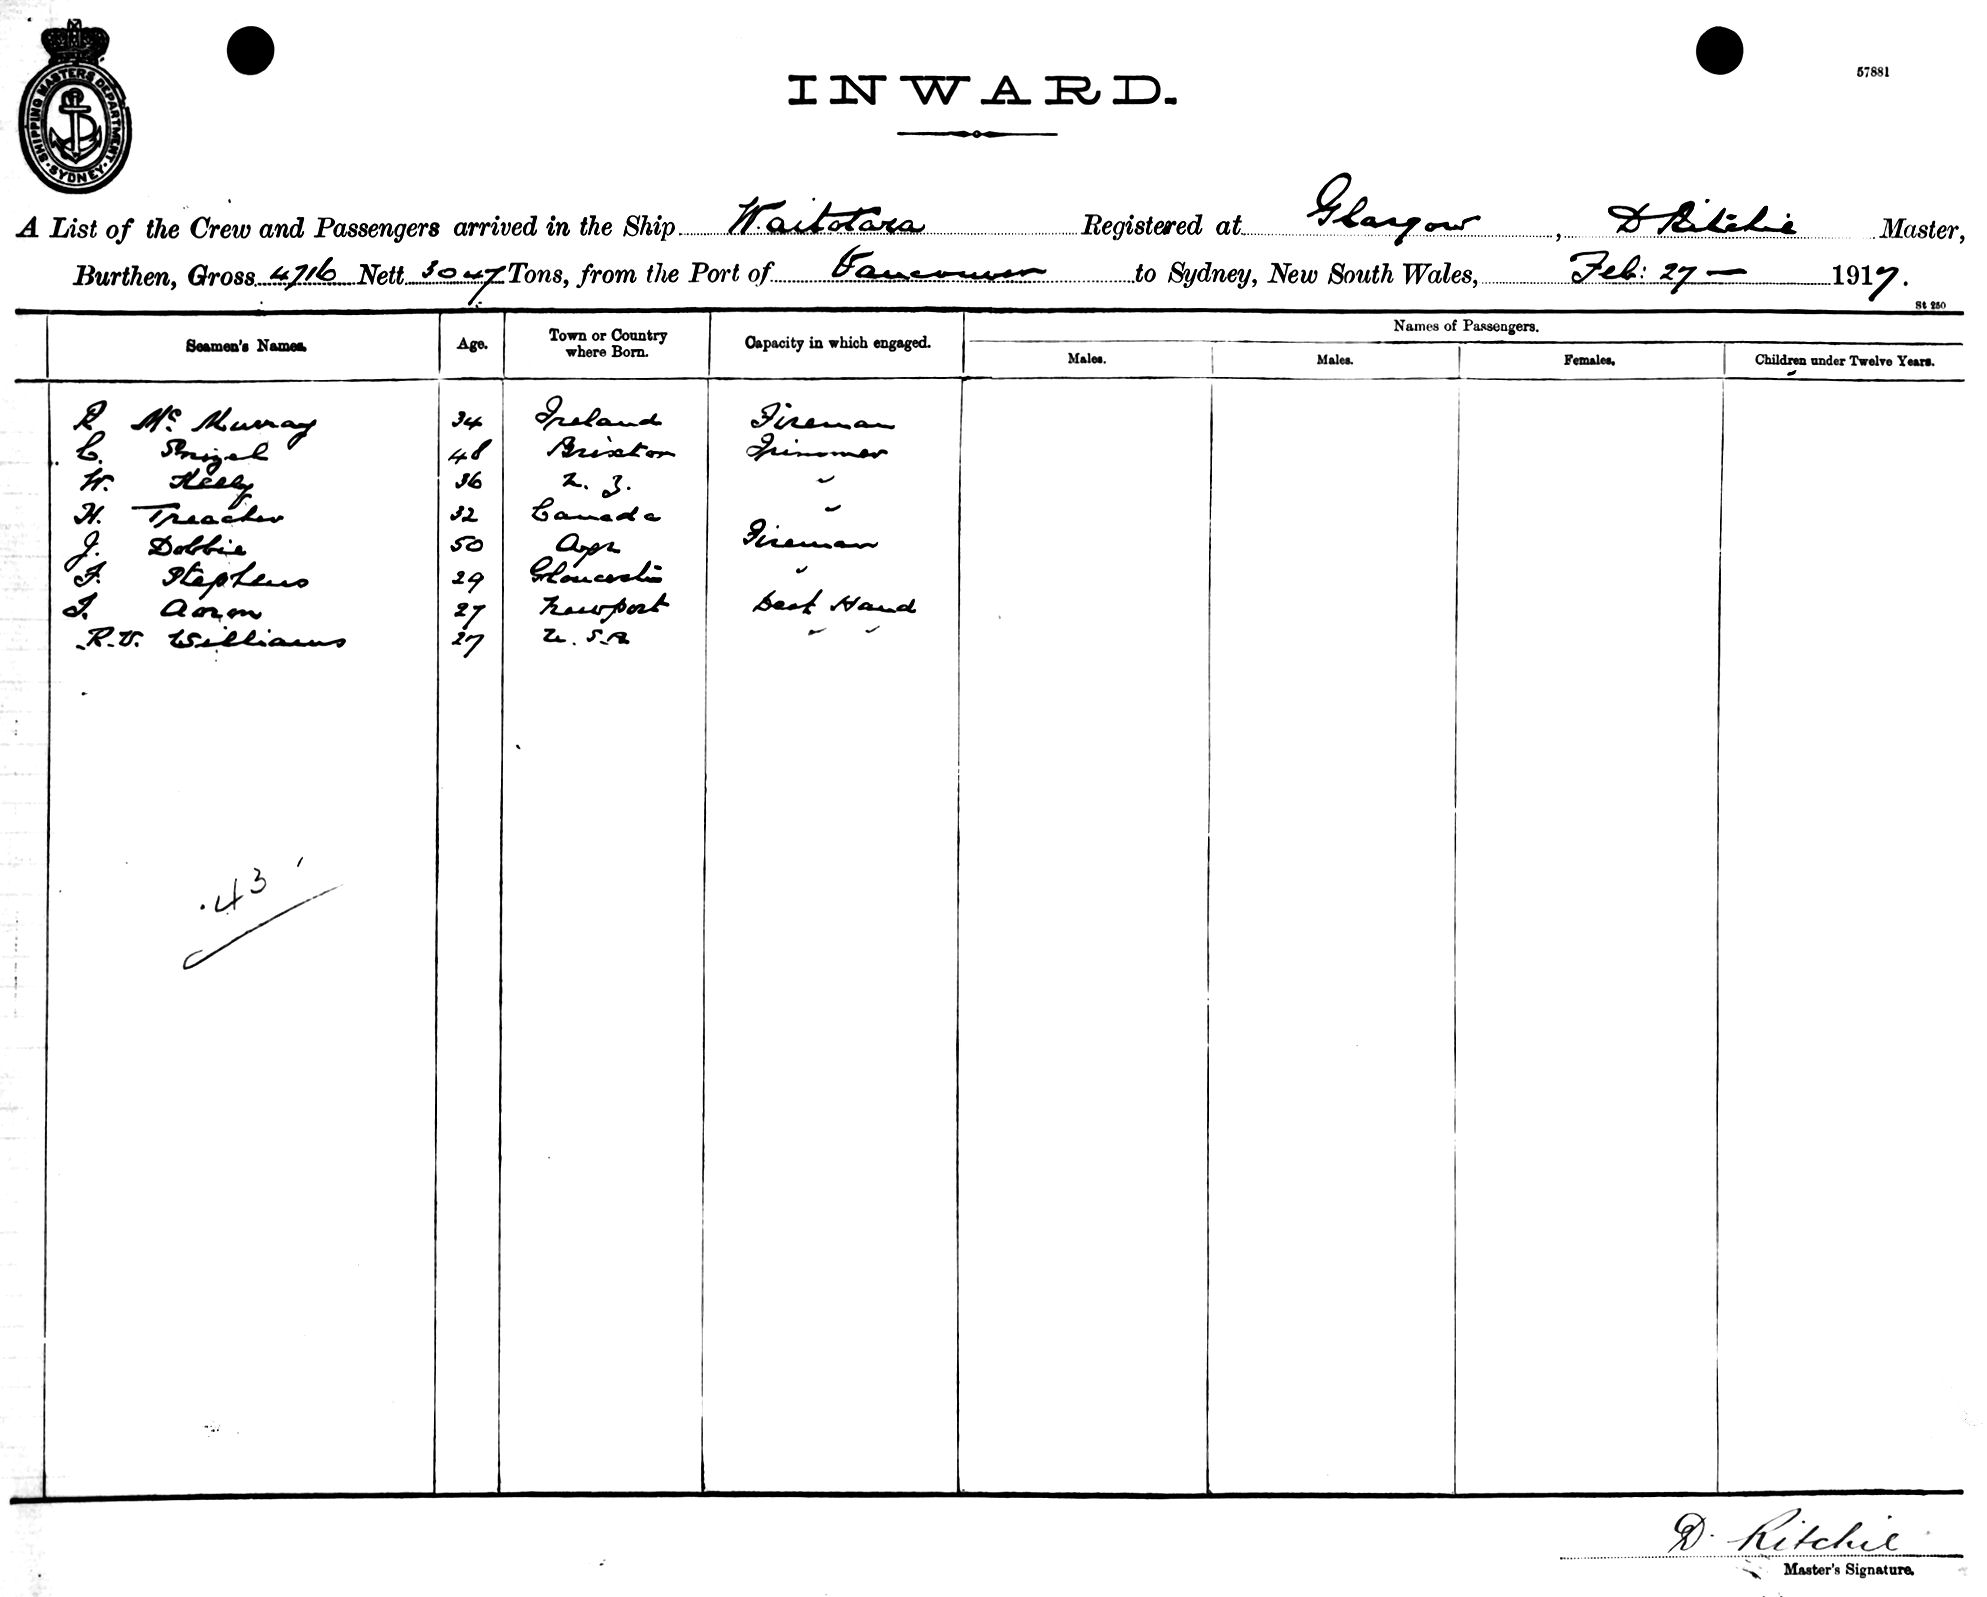 57881
INWARD.
SHIPPING MASTERS DEPARTMENT SYDNEY
A List of the Crew and Passengers arrived in the Ship Waitotara Registered at Glasgow, D Ritchie Master,
Burthen, Gross 4716 Nett 3047 Tons, from the Port of Vancouver to Sydney, New South Wales, Feb: 27 — 1917.
St 250
Seamen's Names. Age. Town or Country where Born. Capacity in which engaged. Names of Passengers.
Males. Males. Females. Children under Twelve Years.
R McMurray 34 Ireland Fireman
C. 48 Brixton Trimmer
W. Keely 36 N. Z. "
H. Treacher 32 Canada "
J. Dobbie 50 Ayr Fireman
F. Stephens 29 Gloucester "
T. Aaron 27 Newport Deck Hand
R.V. Williams 27 U.S.A " "
43
D. Ritchie
Master's Signature.